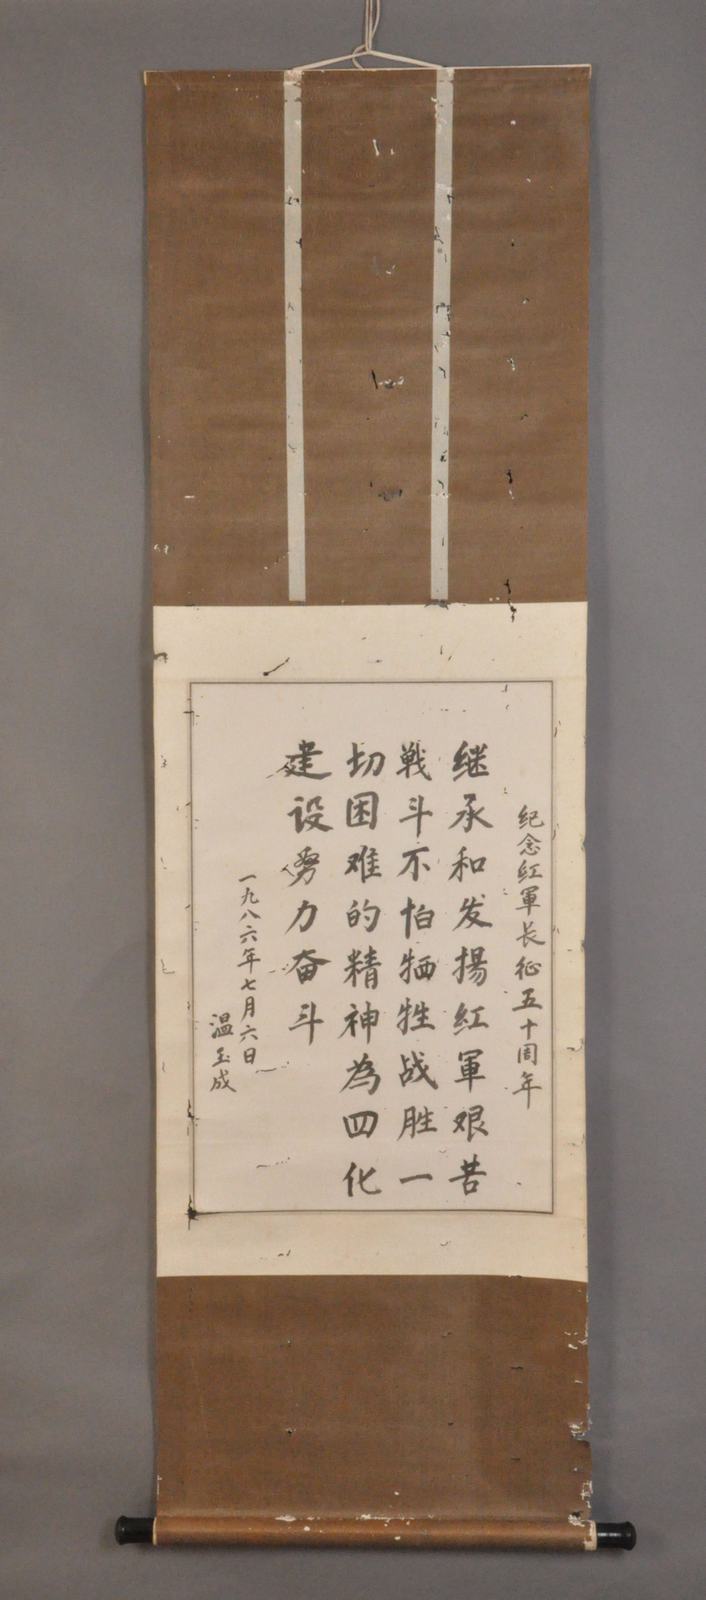 纪念红軍长征五十周年
继承和发揚红軍艰苦
戦斗不怕牺牲战胜一
切困难的精神為四化
建设努力奋斗
一九八六年七月六日
温玉成